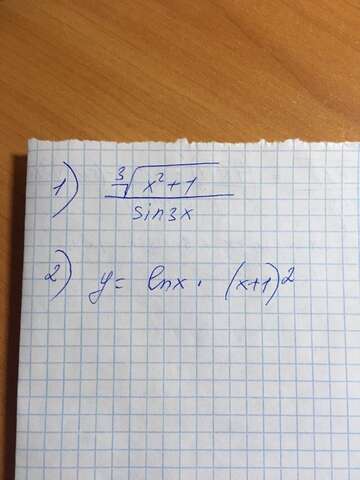 1) ∛(x²+1) / sin3x
2) y = lnx · (x+1)²